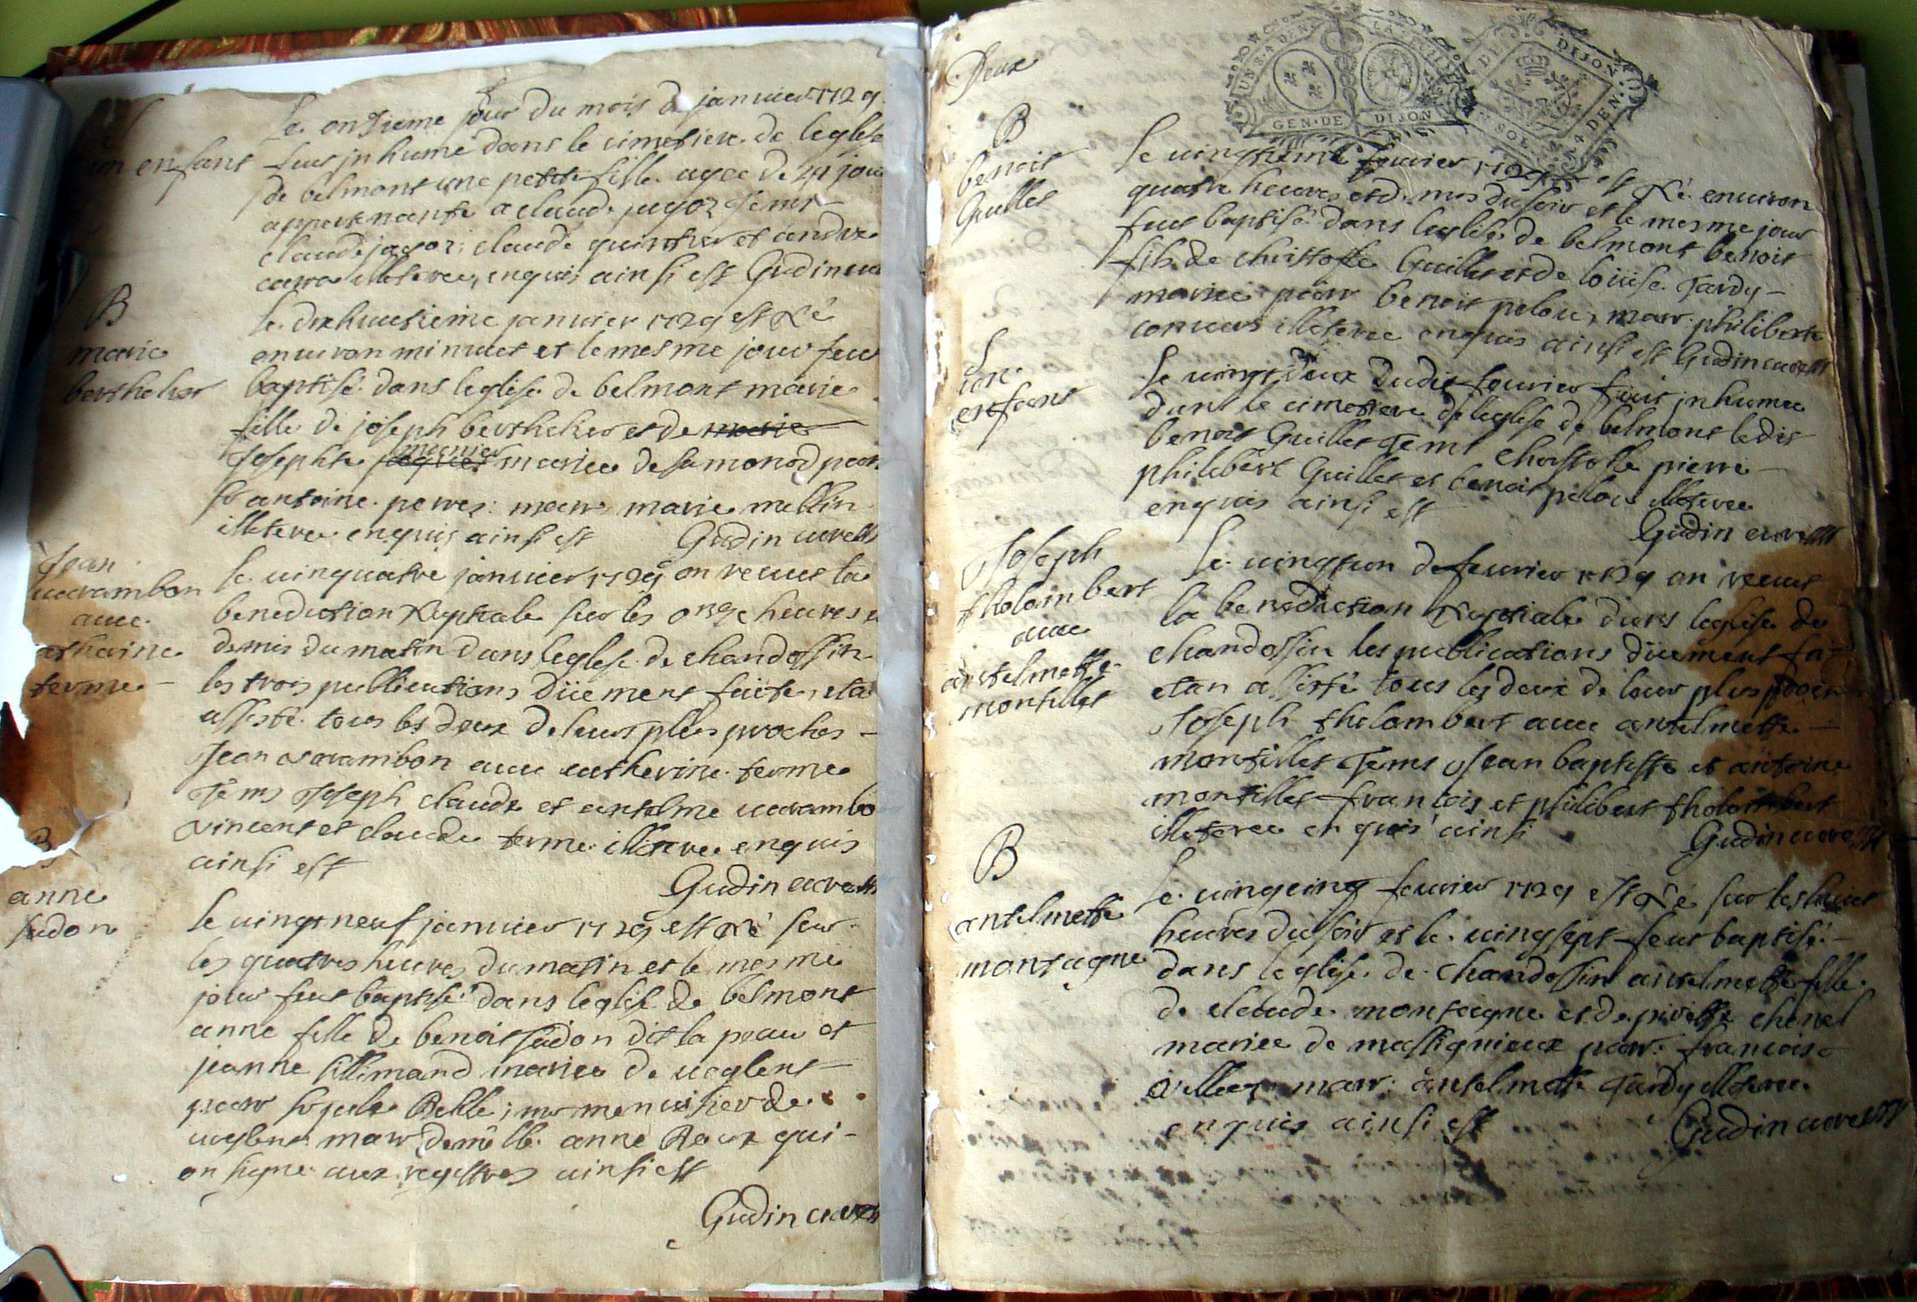 Le onzieme jour du mois de janvier 1729
un enfant
fut inhume dans le cimetiere de leglise
de belmont une petite fille agee de 21 jour
appartenante a claude jugoz Tems
claude jagoz claude quintin et andre
illiteree enquis ainsi est Gudin cure
B
marie
berthelier
le dixhuitieme janvier 1729 est Né
environ minuict et le mesme jour feut
baptisé dans leglise de belmont marie
fille de joseph berthelier et de marie
Josephte mercier mariee de samonod parr
antoine perret marr marie millin
illiteree enquis ainsi est Gudin cure
Jean
uarambon
auec
catherine
terme
le vingquatre janvier 1729 on receut la
benediction Nuptiale sur les onze heures et
demis du matin dans leglise de chandossin
les trois publications düement faite, etan
assisté tous les deux de leurs plus proches
Jean uarambon auec catherine terme
Tems Joseph claude et antelme uarambon
vincent et claude terme illiteree enquis
ainsi est
Gudin cure
B
anne
sudon
le vingt neuf janvier 1729 est Né sur
les quatres heures du matin et le mesme
jour feut baptisé dans leglise de belmont
anne fille de benoit sudon dit la peau et
jeanne sillimand mariee de ueglens
parr hypolite Belle, mr menuisier de
ueglens marr demlle anne Roux qui
on signe aux registres ainsi est
Gudin cure
Deux
UN S. 4 DEN.
GEN. DE DIJON
DIJON
SOL. 4 DEN.
B
benoit
Guillet
Le vingtieme fevrier 1729 est Né environ
quatre heures et demis du soir et le mesme jour
feut baptisé dans leglise de belmont benoit
fils de christofle Guillet et de louise Tardy
mariee parr benoit pelou, marr philiberte
illiteree enquis ainsi est Gudin cure
un
enfant
Le vingt deux dudit fevrier feut inhumee
dans le cimetiere de leglise de belmont ledit
benoit Guillet Tems christofle pierre
philibert Guillet et benoit pellou illiteree
enquis ainsi est
Gudin cure
Joseph
tholombert
auec
antelmette
montillet
Le vingtun de fevrier 1729 on receut
la benediction Nuptiale dans leglise de
chandossin les publications düement fai
etan assisté tous les deux de leur plus proch
Joseph tholombert auec antelmette
montillet Tems Jean baptiste et antoine
montillet francois et philibert tholombert
illiteree enquis ainsi Gudin cure
B
antelmette
montagne
Le vingcinq fevrier 1729 est Né sur les huict
heures du soir et le vingsept feut baptisé
dans leglise de chandossin antelmette fille
de claude montagne et de pivette chenel
mariee de massignieux parr francois
marr antelmette Tardy illiteree
enquis ainsi est
Gudin cure